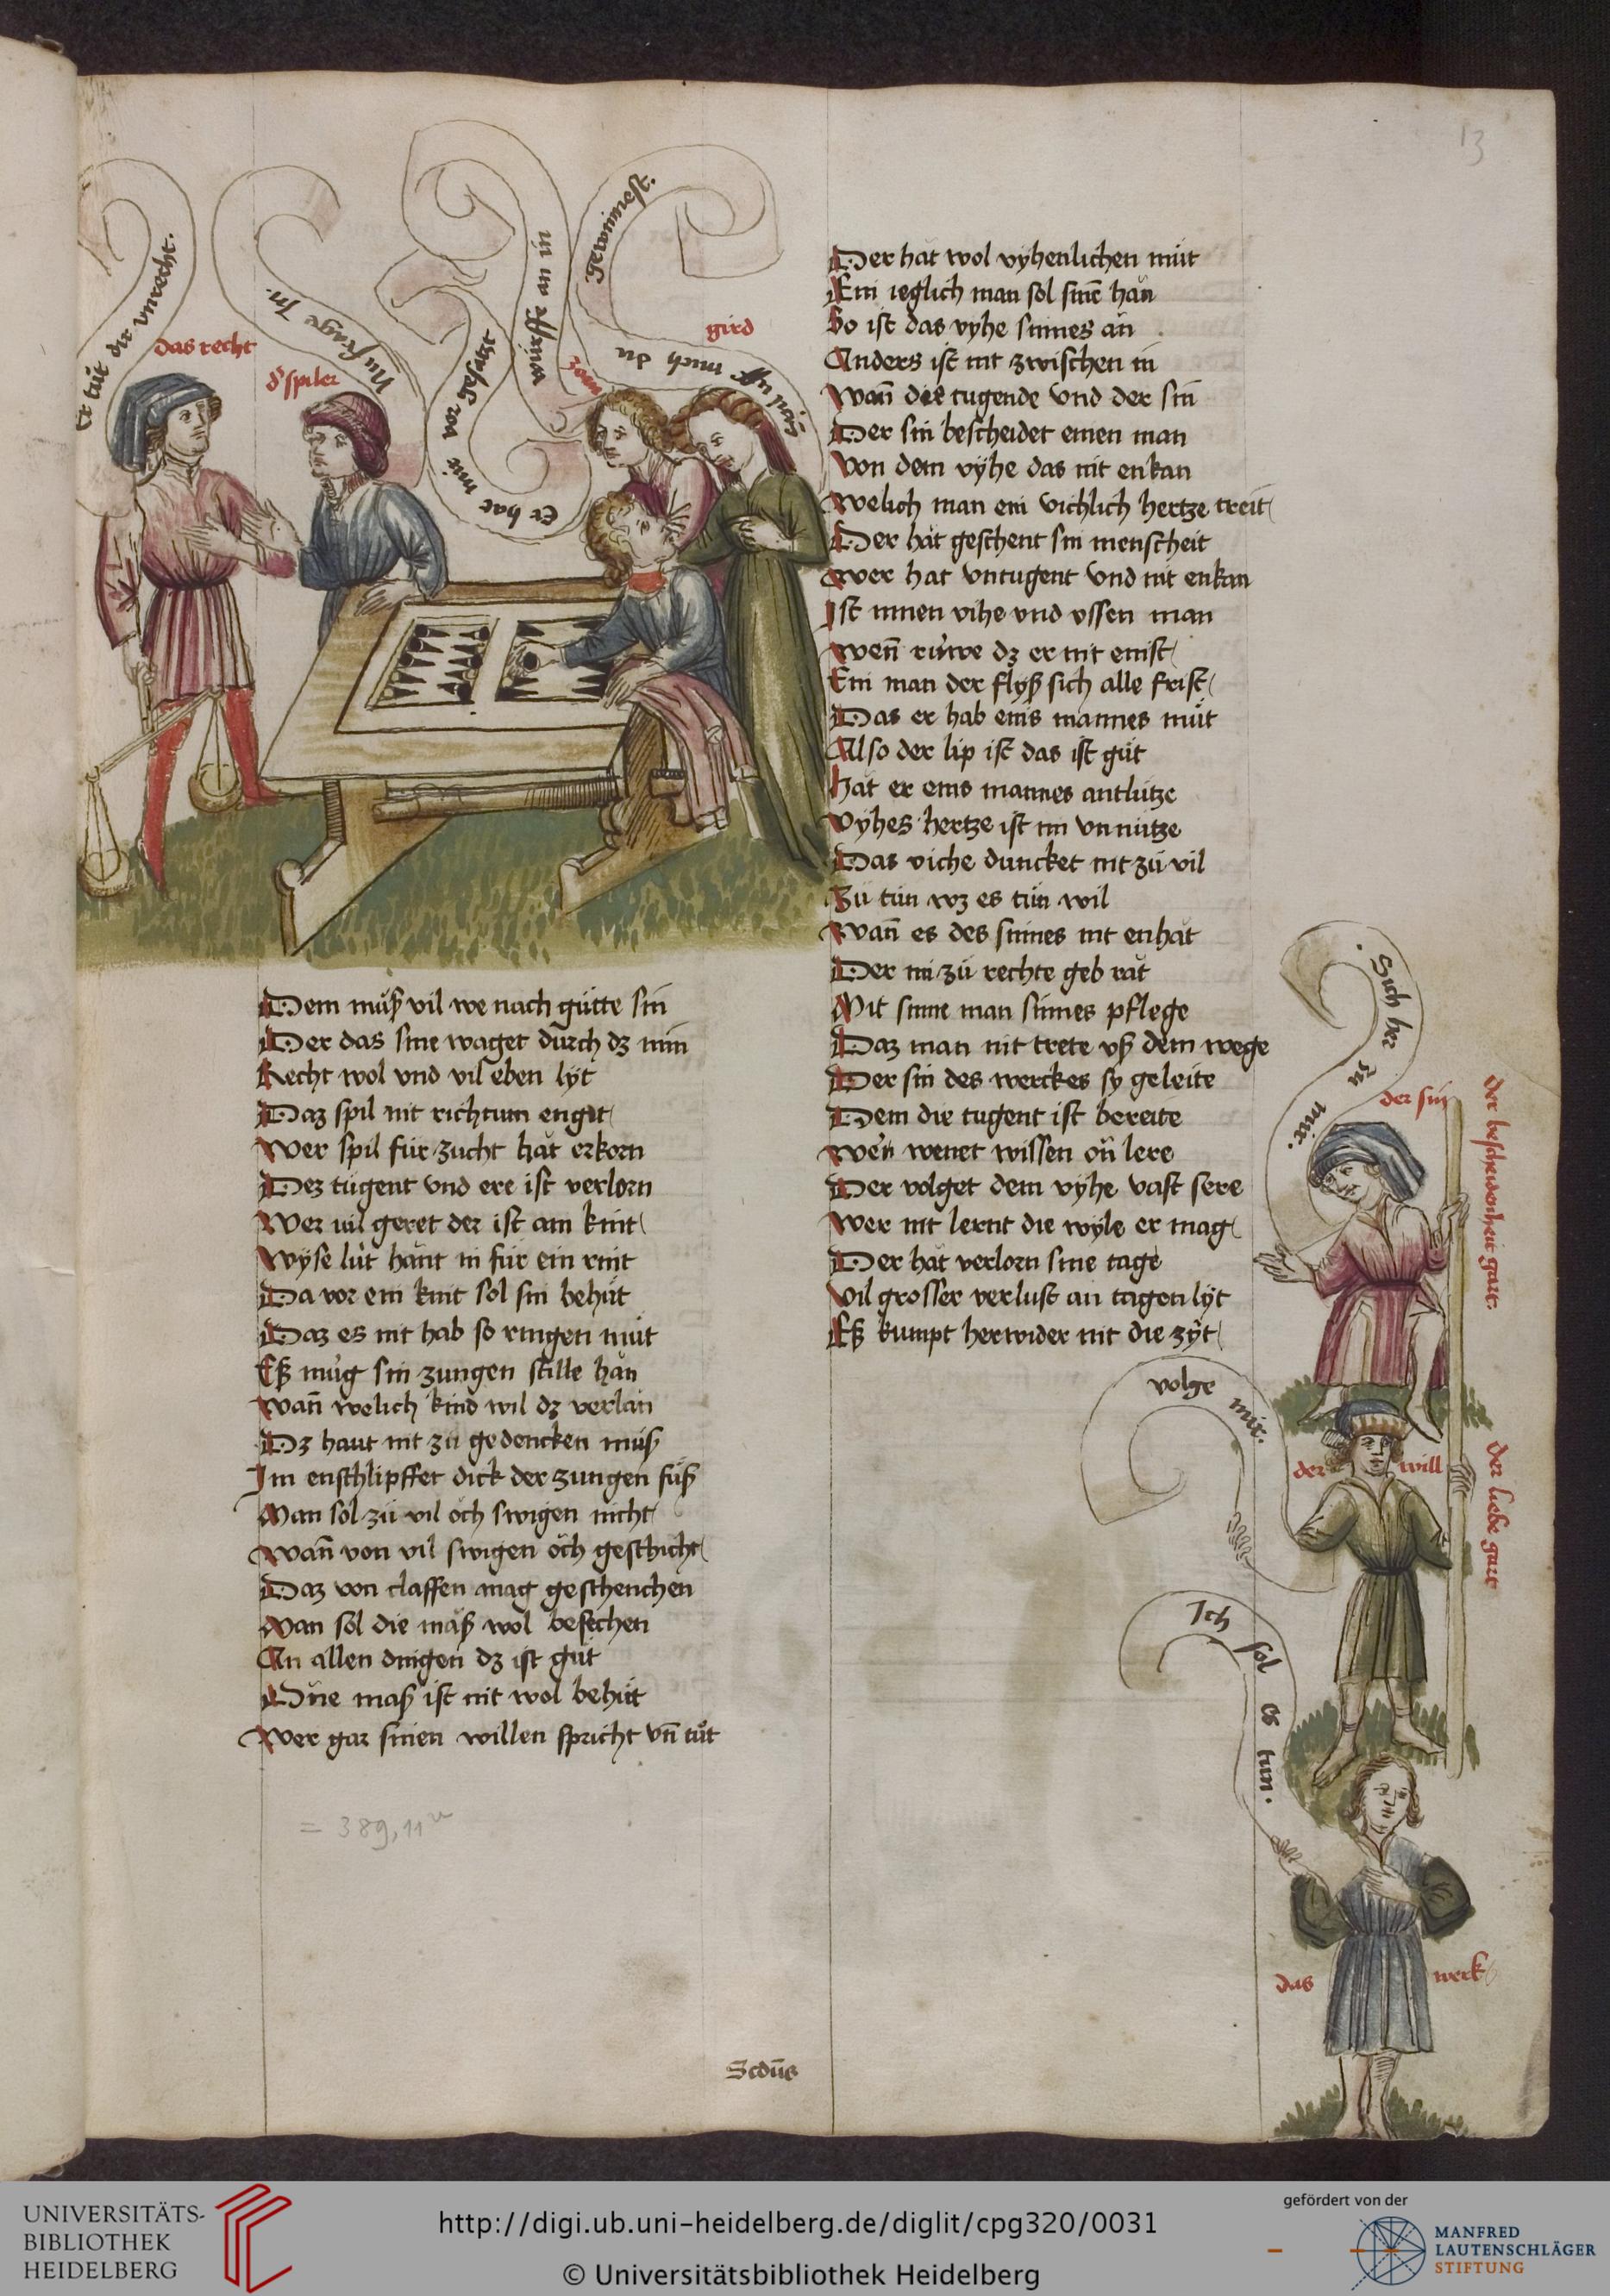 13
Er tůt dir vnrecht.
das recht
Nu frage In.
d͛ spiler
Er hat mir vor gesatzt
würffe an in
zorn
gird
sich uff mich du gewinnest.
Dem můß vil we nach gůtte sin
Der das sine waget durch dz min
Recht wol vnd vil eben lyt
Daz spil nit richtum engit
Wer spil für zucht hăt erkorn
Dez tugent vnd ere ist verlorn
Wer vil geret der ist am kint
Wyse lüt hant in für ein rint
Da vor ein kint sol sin behůt
Daz es nit hab so ringen můt
Eß mug sin zungen stille hăn
Wann welich kind wil dz verlan
Dz haut nit zů gedencken můß
Im enschlipffet dick der zungen fůß
Man sol zů vil öch swigen nicht
Wann von vil swigen öch geschicht
Daz von claffen mag geschenchen
Man sol die mǎß wol besechen
An allen dingen dz ist gůt
One maß ist nit wol behůt
Wer gar sinen willen spricht vn̄ tůt
= 389, 11
Der hat wol vyhenlichen můt
Ein ieglich man sol sine hăn
So ist das vyhe sinnes an
Anders ist nit zwischen in
Wann die tugende vnd der sin
Der sin bescheidet einen man
Von dem vyhe das nit enkan
Welich man ein vichlich hertze treit
Der hăt geschent sin menscheit
Wer hat vntugent vnd nit enkan
Ist innen vihe vnd vssen man
Wenn rüwe dz er nit enist
Ein man der flyß sich alle frist
Das er hab eins mannes můt
Also der lip ist das ist gůt
Hat er eins mannes antlütze
Vyhes hertze ist im vnnütze
Das viche duncket nit zů vil
Zů tůn wz es tůn wil
Wann es des sinnes nit enhăt
Der im zů rechte geb răt
Mit sinne man sinnes pflege
Daz man nit trete vß dem wege
Der sin des werckes sy geleite
Dem die tugent ist bereite
Wer wenet wissen on lere
Der volget dem vyhe vast sere
Wer nit lernt die wyle er mag
Der hăt verlorn sine tage
Vil grosser verlust an tagen lyt
Eß kumpt herwider nit die zyt
Sich her zů mir.
der sin
der bescheidenheit gart.
volge mir.
der will
der liebe gart
Ich sol es tun.
das werk
Scd̄us
UNIVERSITÄTS-
BIBLIOTHEK
HEIDELBERG
http://digi.ub.uni-heidelberg.de/diglit/cpg320/0031
© Universitätsbibliothek Heidelberg
gefördert von der
MANFRED
LAUTENSCHLÄGER
STIFTUNG